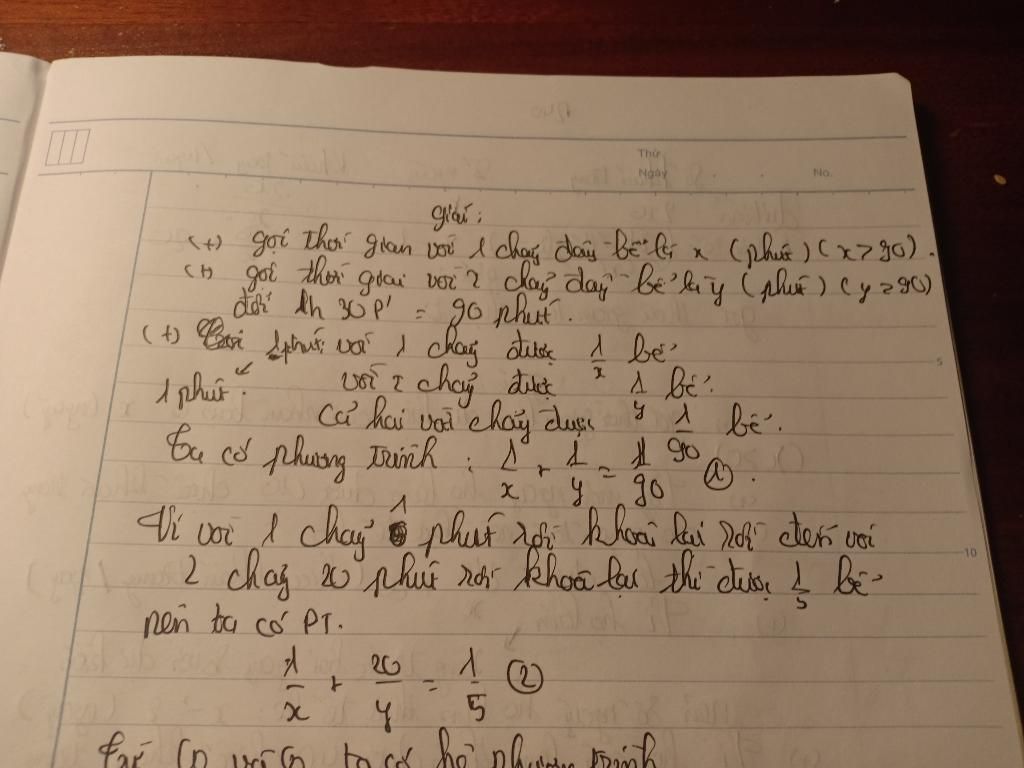 Thứ
Ngày
No.
giải:
(+) gọi thời gian vòi 1 chảy đầy bể là x (phút) (x > 90).
(+) gọi thời gian vòi 2 chảy đầy bể là y (phút) (y > 90)
đổi 1h 30P' = 90 phút.
(+) 1 phút vòi 1 chảy được 1/x bể
1 phút. vòi 2 chảy được 1/y bể.
Cả hai vòi chảy được 1/90 bể.
Ta có phương trình : 1/x + 1/y = 1/90 (1).
Vì vòi 1 chảy 1 phút rồi khoá lại rồi đến vòi
2 chảy 20 phút rồi khoá lại thì được 1/5 bể
nên ta có PT.
1/x + 20/y = 1/5 (2)
5
10
ta có hệ phương trình